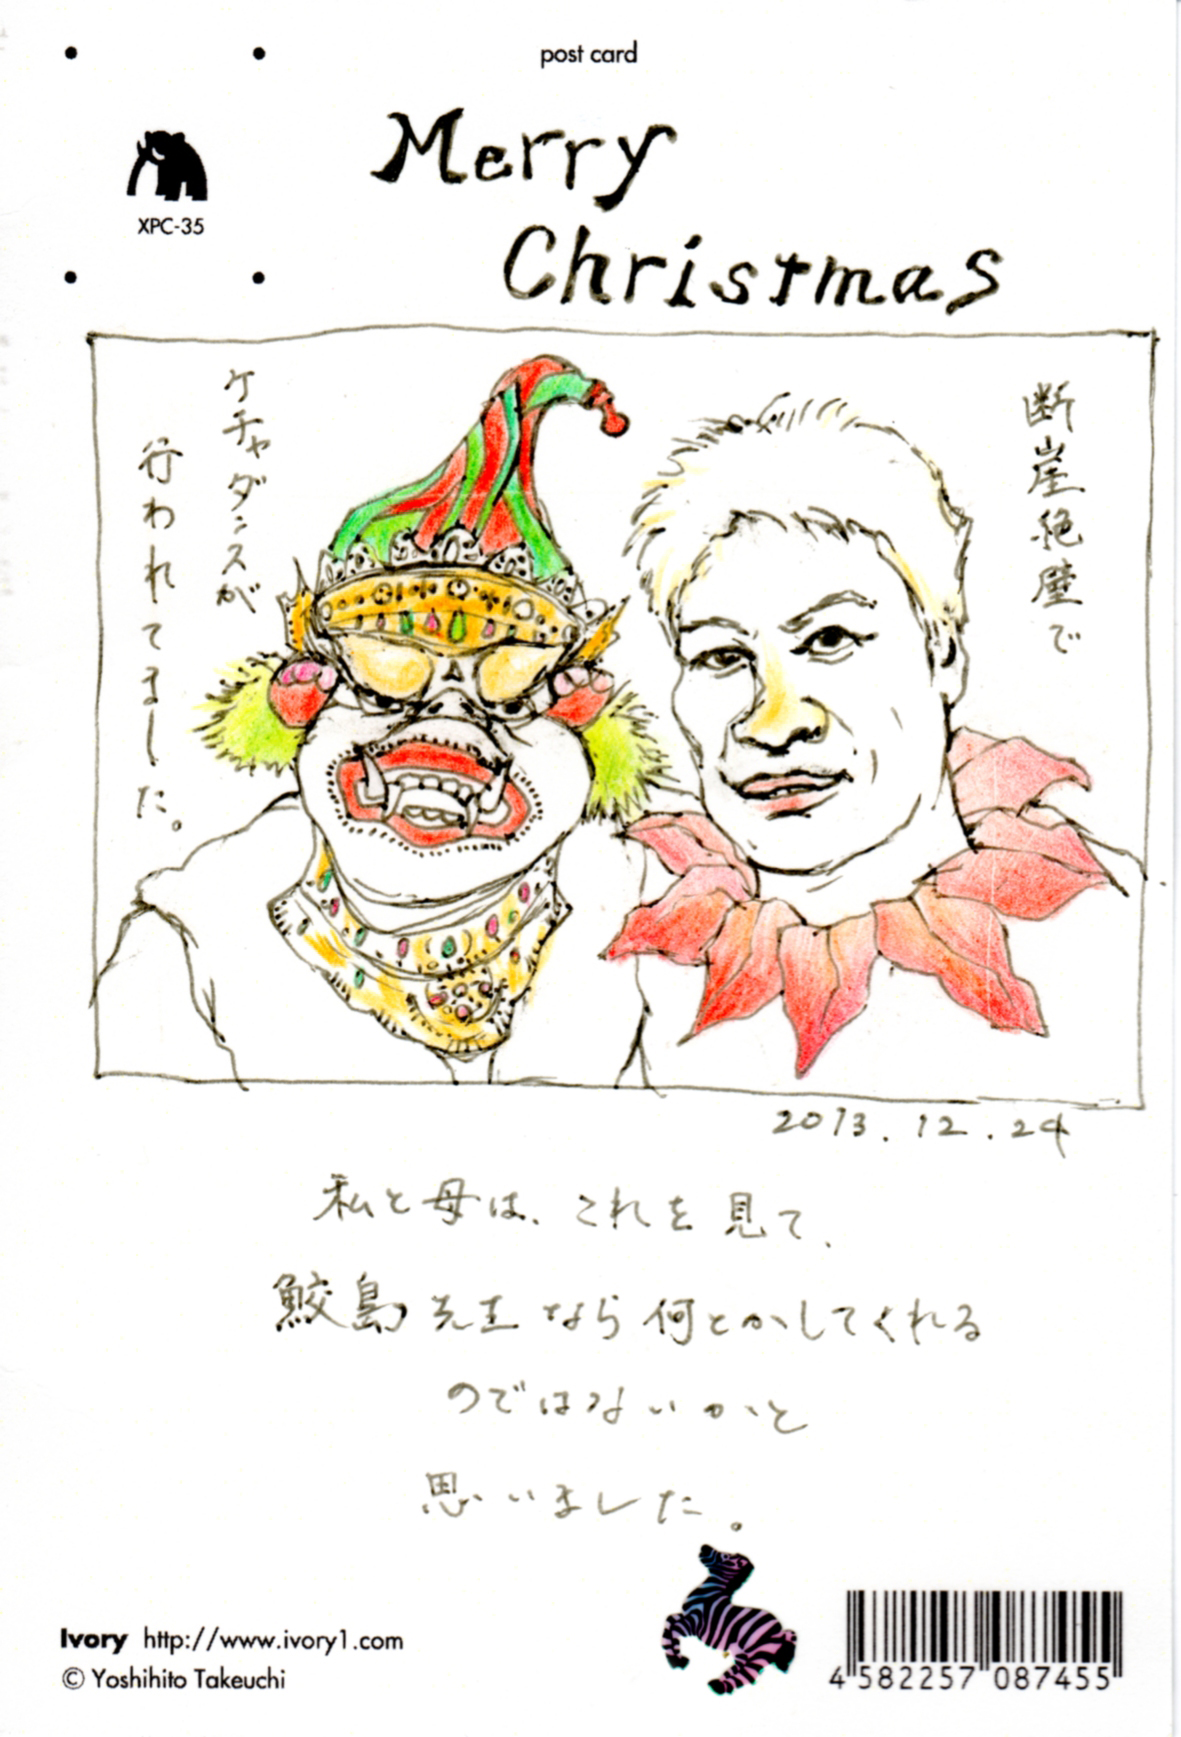 post card
XPC-35
Merry
Christmas
断崖絶壁で
ケチャダンスが
行われてました。
2013.12.24
私と母は、これを見て、
鮫島先生なら何とかしてくれる
のではないかと
思いました。
Ivory http://www.ivory1.com
© Yoshihito Takeuchi
4 582257 087455